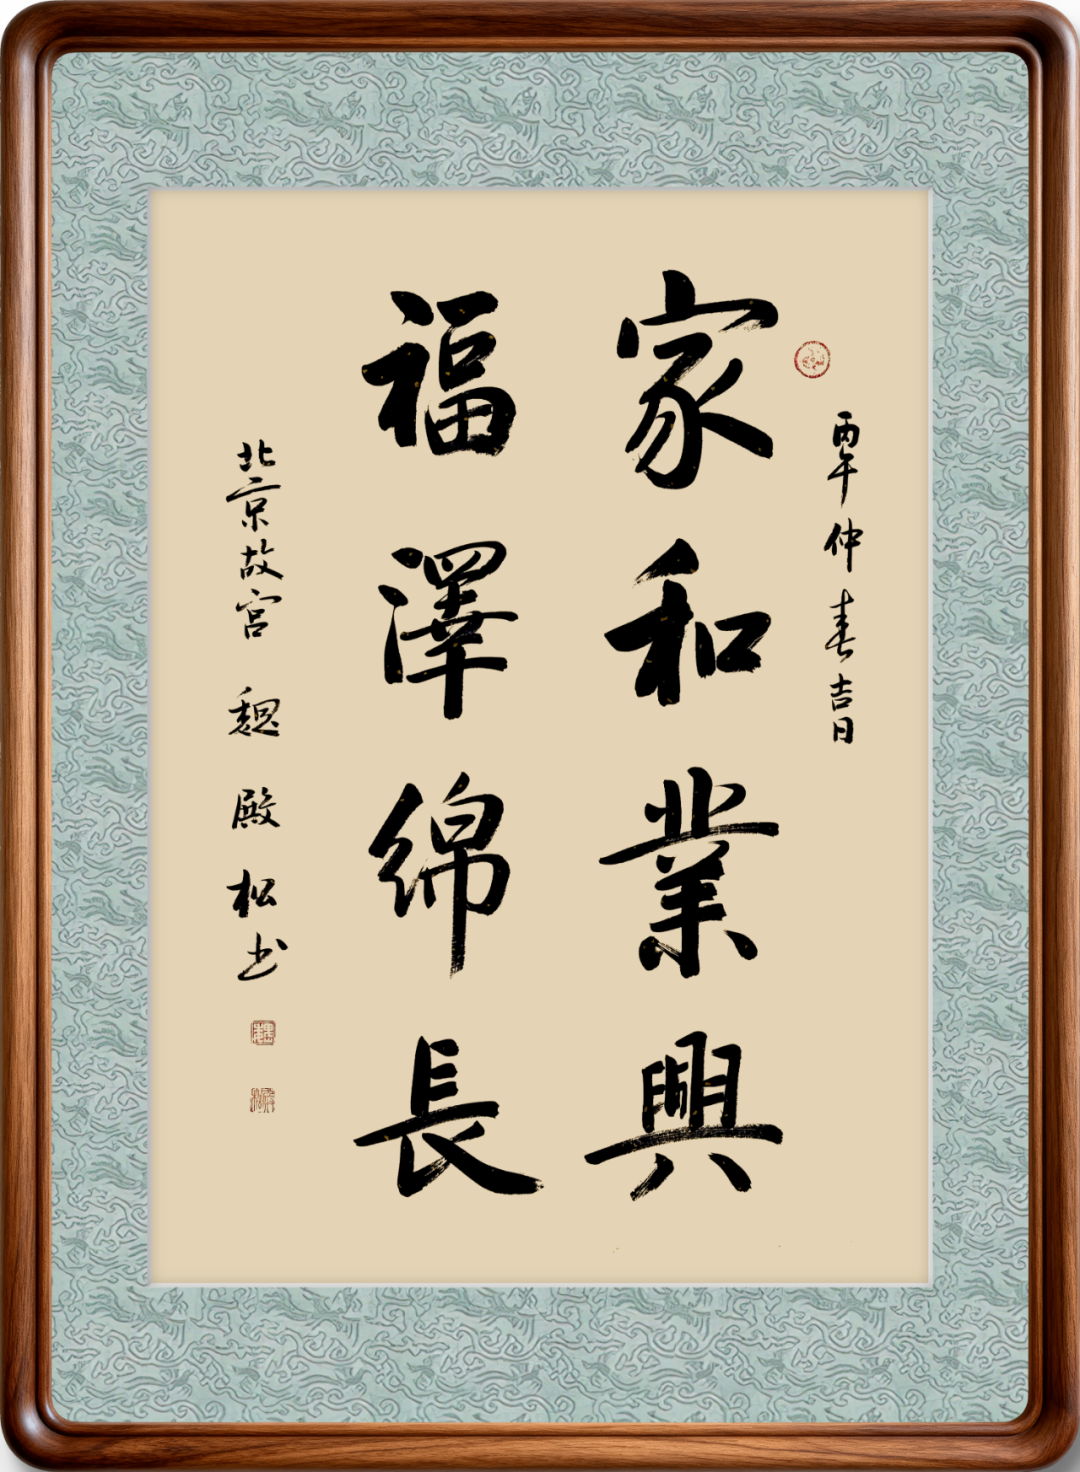 丙午仲春吉日
家和業興
福澤綿長
北京故宫 魏殿松书